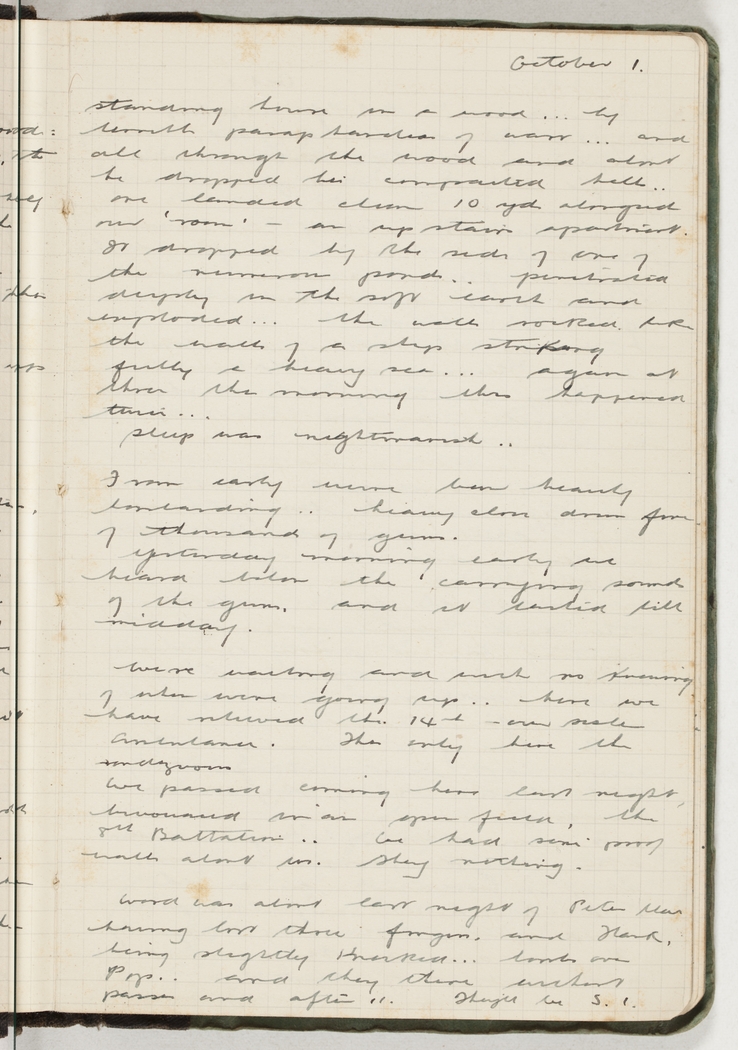 October 1.
standing house in a wood... by
terrible paraphernalia of war... and
all through the wood and about
he dropped his compacted hell..
one landed clean 10 yds alongside
our 'room' – an upstairs apartment.
It dropped by the side of one of
the numerous ponds.. penetrated
deeply in the soft earth and
exploded... the walls rocked like
the walls of a ship striking
fully a heavy sea... again at
three the morning this happened
twice...
sleep was nightmarish..
From early we've been heavily
bombarding.. heavy close drum fire
of thousands of guns.
yesterday morning early we
heard below the carrying sound
of the guns, and it lasted till
midday.
We're waiting and with no knowing
of when we're going up.. here we
have relieved the 14th – our sister
Ambulance. This only here the
rendezvous
We passed coming here last night,
bivouaced in an open field, the
8th Battalion.. We had semi proof
walls about us. They nothing.
Word was about last night of Peter
having lost three fingers, and Hark.
being slightly knocked... bombs over
Pop.. and they there without
passes and after!!. They'll be S. I.